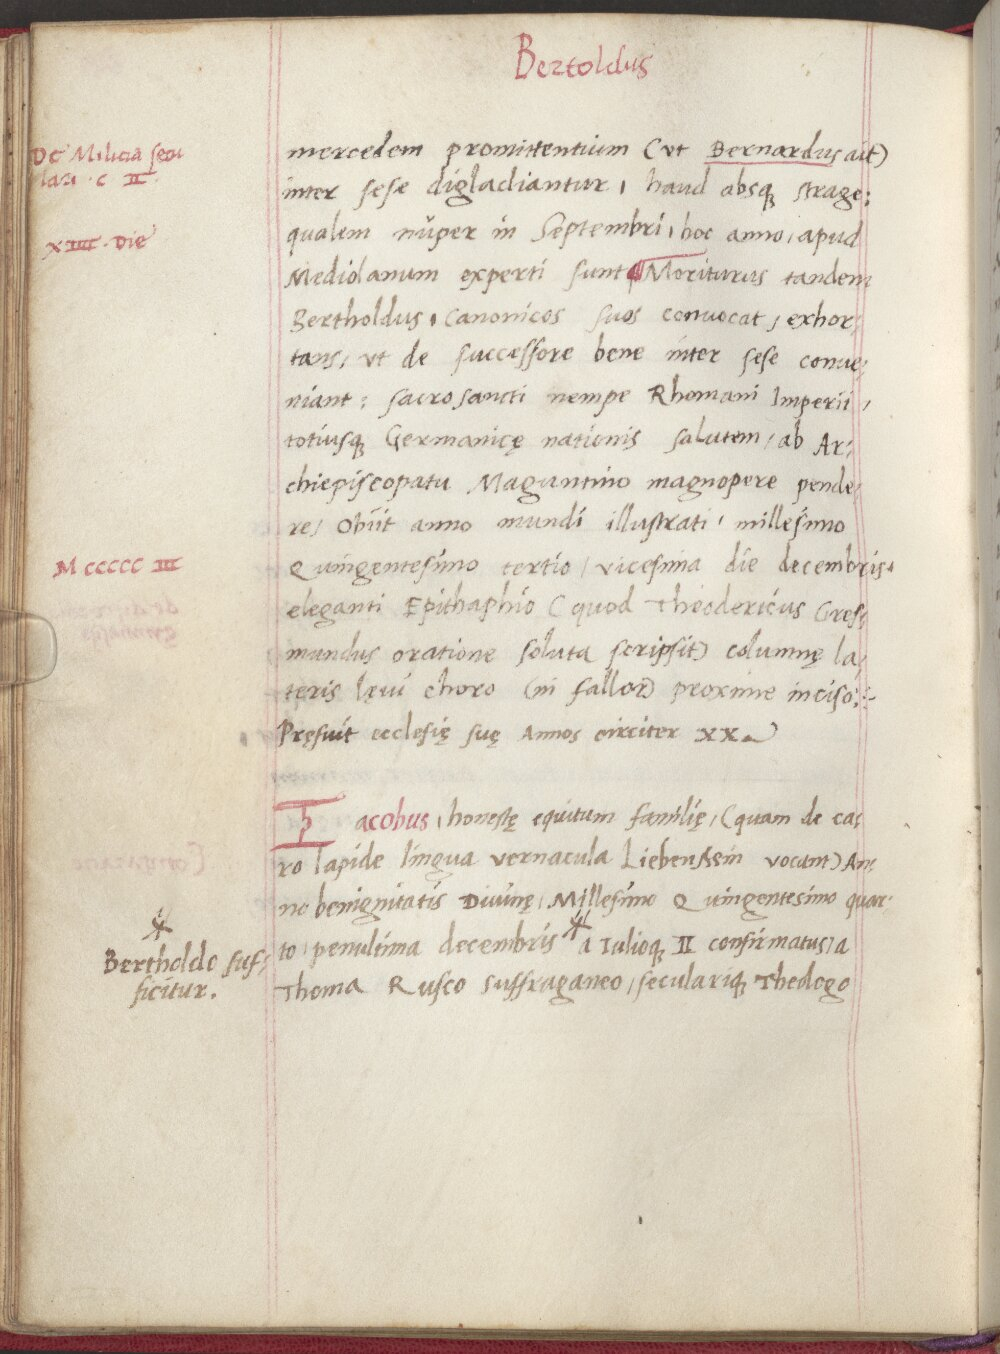 Bertoldus
De Milicia secu
lari · c II ·
XIIII · Die
mercedem promittentium (vt Bernardus ait)
inter sese digladiantur, haud absq strage:
qualem nuper in Septembri, hoc anno, apud
Mediolanum experti sunt Moriturus tandem
Bertholdus, Canonicos suos convocat, exhor,
tans, vt de successore bene inter sese conve,
niant: sacrosancti nempe Rhomani Imperii,
totiusq Germanicę nationis salutem, ab Ar,
chiepiscopatu Maguntino magnopere pende
re, Obiit anno mundi illustrati, millesimo
M CCCCC III
Quingentesimo tertio, vicesima die decembris,
eleganti Epithaphio (quod Theodericus Gres,
mundus oratione soluta scripsit) columnę la,
teris lęvi choro (ni fallor) proxime inciso:
Pręfuit ecclesię suę Annos circiter XX
acobus, honestę equitum familię, (quam de ca
ro lapide lingua vernacula Liebenstein vocant) An
no benignitatis Divinę, Millesimo Quingentesimo quar
to, penultima decembris a Iulioq II confirmatus, a
Thoma Rusco suffraganeo, secularique Theologo
Bertholdo suf,
ficitur.